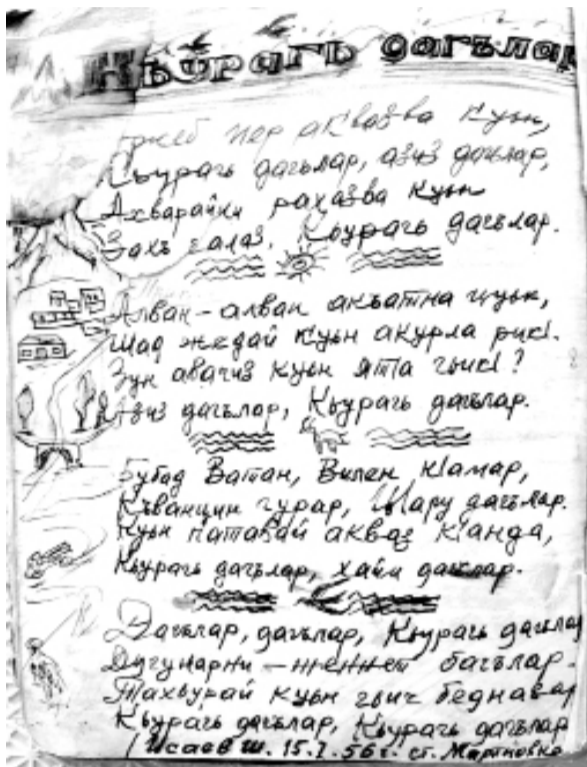 Кьурагь дагълар
пер аквазва куьн,
Кьурагь дагълар, азиз дагълар,
Ахварайни рахазва куьн
Захъ галаз, Кьурагь дагълар.
Алван-алван акъатна цуьк,
Шад жедай куьн акурла рикӀ.
Зун авачиз куьн ята гьикӀ?
Азиз дагълар, Кьурагь дагълар.
Бубад Ватан, Вилен кӀамар,
Къванцин гурар, Шару дагълар.
Куьн патавай акваз кӀанда,
Кьурагь дагълар, хайи дагълар.
Дагълар, дагълар, Кьурагь дагълар
Дугунарни - женнет багълар.
Тахвурай куьн гьич беднавар
Кьурагь дагълар, Кьурагь дагълар
Исаев Ш. 15.I.56г. ст. Мартновка